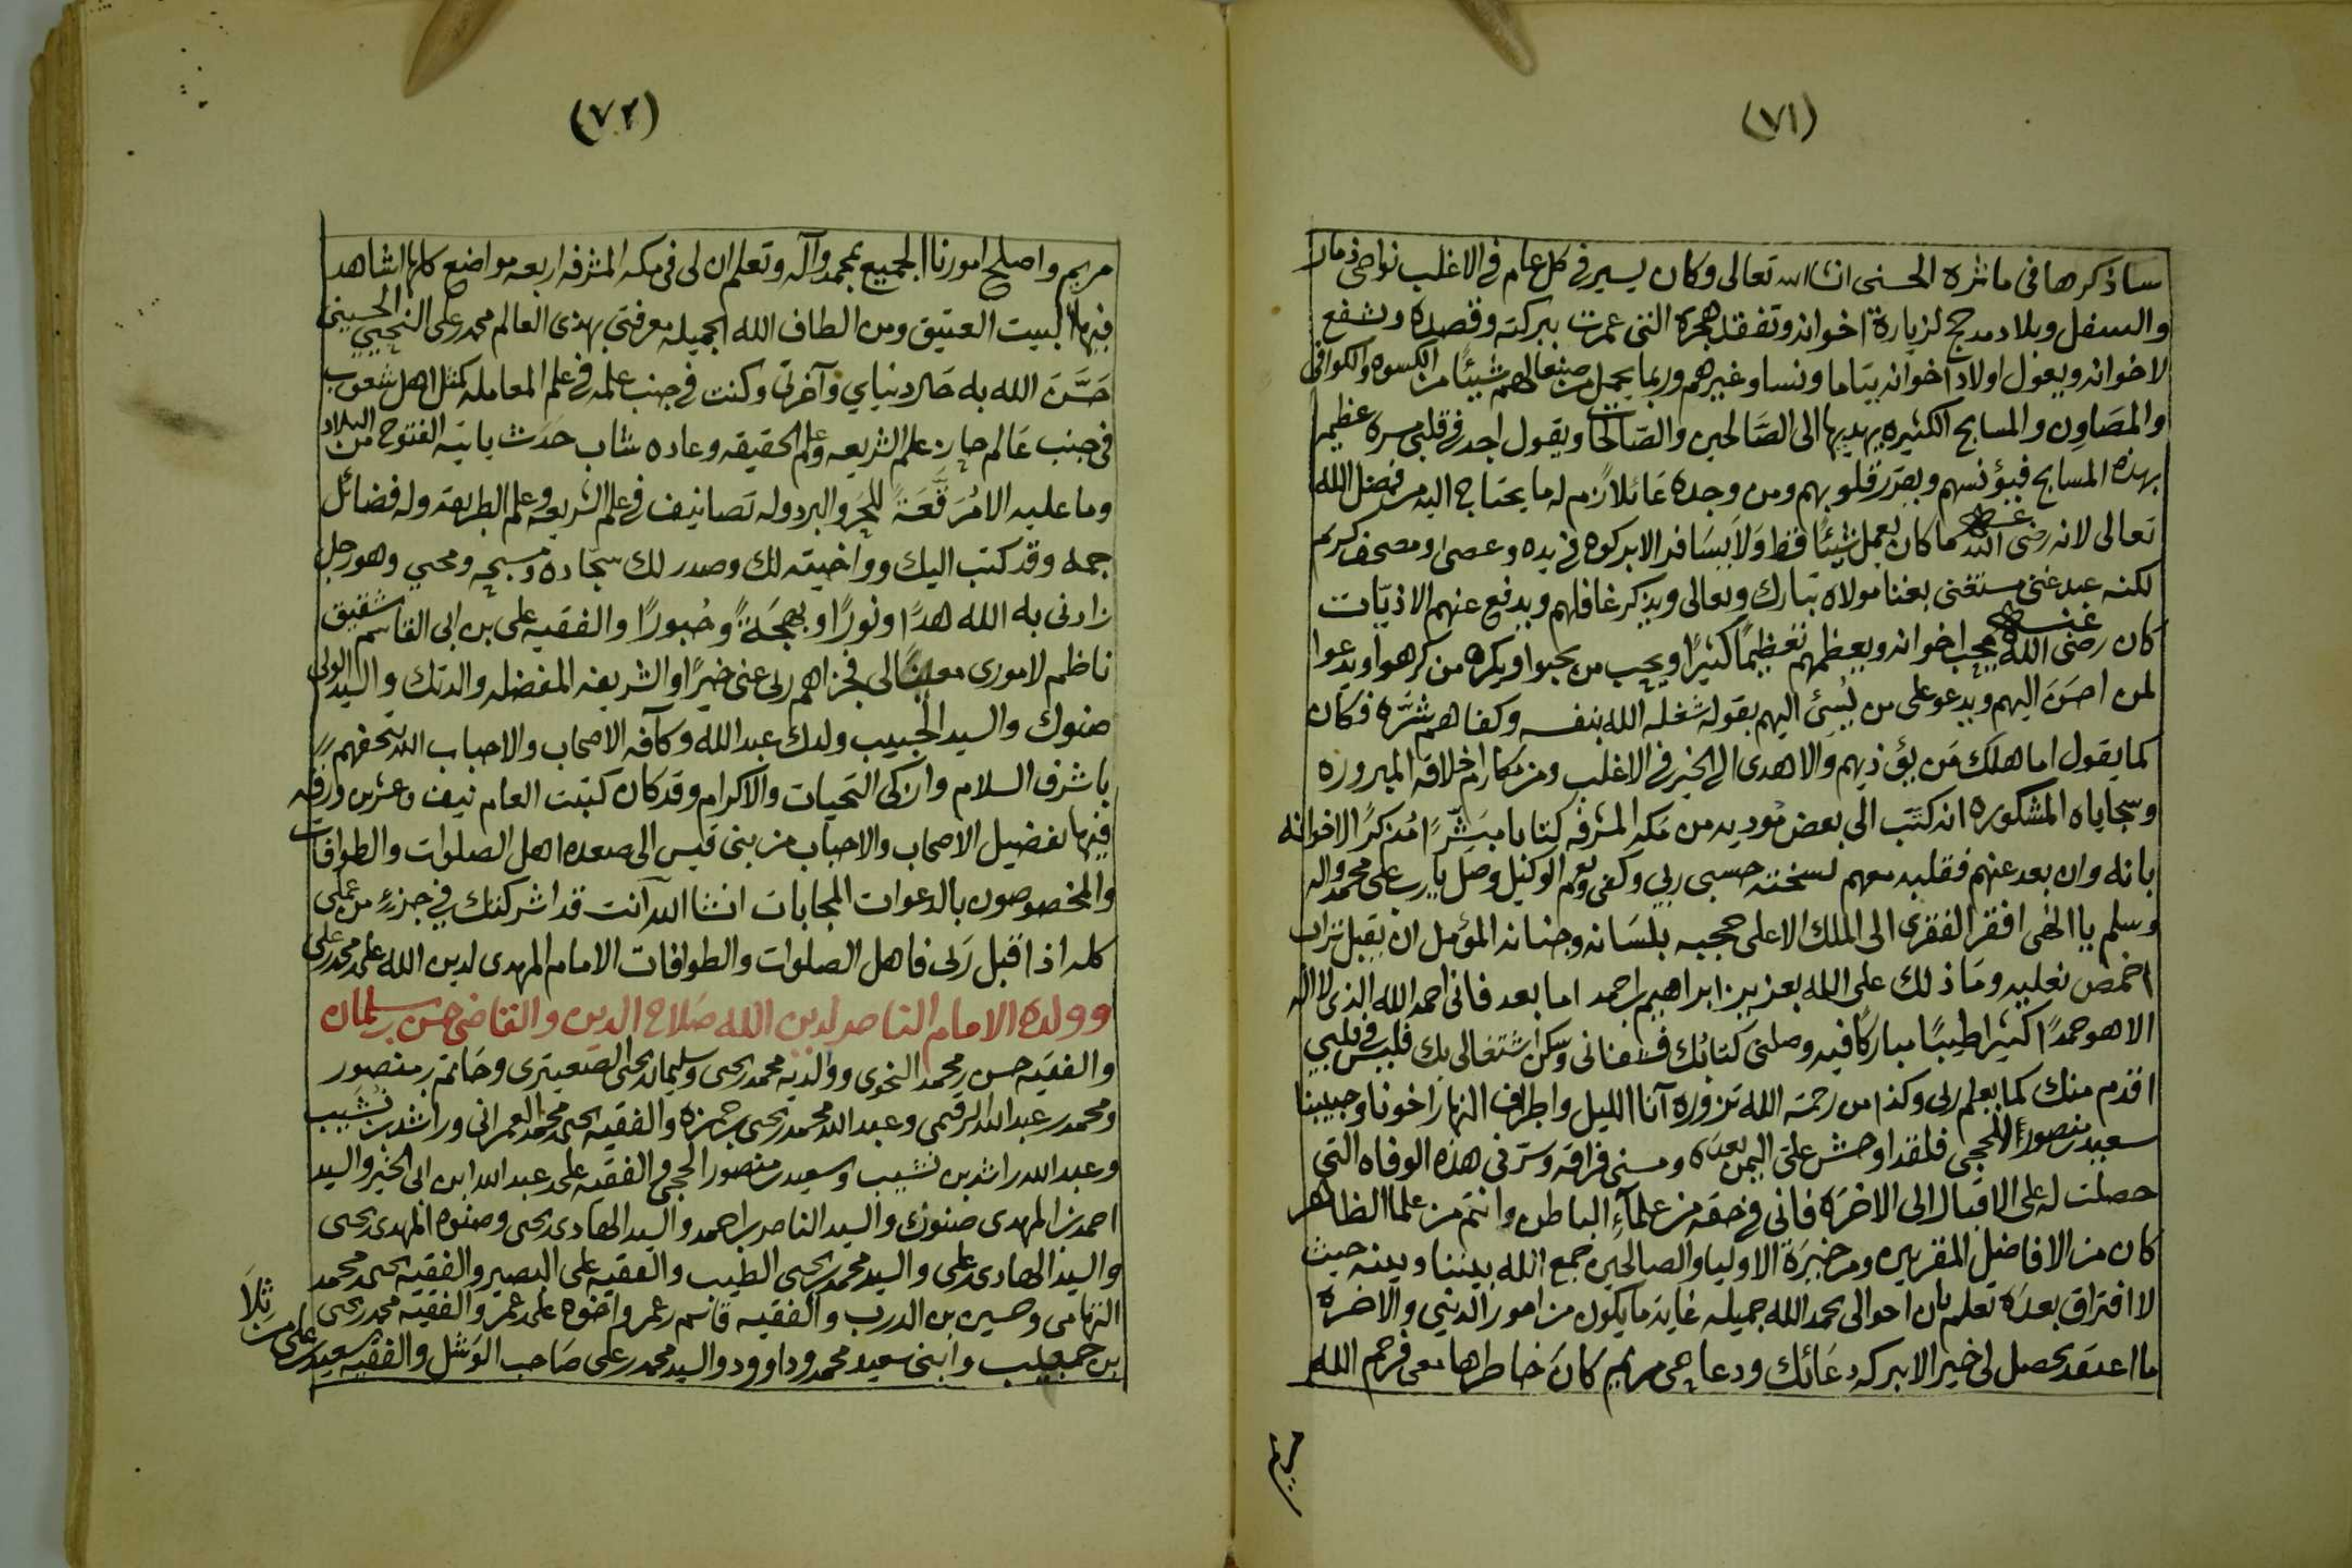 (٧١)
ساذكرها في ماثره الحسنى ان شا الله تعالى وكان يسير في كل عام في الاغلب نواحي ذمار
والسفل وبلاد مدحج لزيارة اخوانه وتفقد هجره التي عمرت ببركته وقصده وتشفع
لاخوانه ويعول اولاد اخوانه يتاما ونسا وغيرهم وربما يحمل من صنعا لهم شيئا من الكسوه والكوافي
والمصاون والمسابح الكثيره يهديها الى الصالحين والصالحات ويقول اجد في قلبي مسره عظيمه
بهذه المسابح فيؤنسهم ويقرر قلوبهم ومن وجده عائلا زم له ما يحتاج اليه من فضل الله
تعالى لانه رضي الله عنه ما كان يعمل شيئا قط ولا يسافر الا بركوه في يده وعصى ومصحف كريم
لكنه عبد غني مستغني بغنا مولاه تبارك وتعالى ويذكر غافلهم ويدفع عنهم الاذيات
كان رضي الله عنه يحب اخوانه ويعظمهم تعظيما كثيرا ويحب من يحبوا ويكره من كرهوا ويدعوا
لمن احسن اليهم ويدعو على من يسئ اليهم بقوله شغله الله بنفسه وكفاهم شره فكان
كما يقول اما هلك من يؤذيهم والا هدى الى الخير في الاغلب ومن مكارم اخلاقه المبروره
وسجاياه المشكوره انه كتب الى بعض موديه من مكه المشرفه كتابا مبشرا مذكرا لاخوانه
بانه وان بعد عنهم فقلبه معهم نسخته حسبي ربي وكفى ونعم الوكيل وصل يارب على محمد واله
وسلم يا الهي افقر الفقرى الى الملك الاعلى حججيه بلسانه وجنانه المؤمل ان يقبل تراب
اخمص نعليه وما ذلك على الله بعزيز ابراهيم بن احمد اما بعد فاني احمد الله الذي لا اله
الا هو حمدا كثيرا طيبا مباركا فيه وصلني كتابك فشفاني وسكن اشتغالي بك فليس في قلبي
اقدم منك كما يعلم ربي وكذا من رحمة الله تزوره آنا الليل واطراف النهار اخونا وحبيبنا
سعيد بن منصور الحججي فلقد اوحش علي اليمن بعده ومسني فراقه وسرني هذه الوفاه التي
حصلت له على الاقبال الى الاخره فاني في حقه من علمآء الباطن وانتم من علما الظاهر
كان من الافاضل المقربين ومن خيرة الاوليا والصالحين جمع الله بيننا وبينه حيث
لا افتراق بعده تعلم بان احوالي بحمد الله جميله غاية ما يكون من امور الدنيي والاخره
ما اعتقد يحصل لي خير الا ببركه دعائك ودعا حي مريم كان خاطرها معي فرحم الله
مريم
(٧٢)
مريم واصلح امورنا الجميع بمحمد وآله وتعلم ان لي في مكه المشرفه اربعه مواضع كلها اشاهد
فيها البيت العتيق ومن الطاف الله الجميله معرفتي بهذى العالم محمد بن علي التجيبي الحسيني
حسن الله به حال دنياي وآخرتي وكنت في جنب علمه في علم المعامله كمثل اهل شعوب
في جنب عالم حاز علم الشريعه وعلم الحقيقه وعاده شاب حدث ياتيه الفتوح من البلاد
وما عليه الا مرقعة للحر والبرد وله تصانيف في علم الشريعه وعلم الطريقه وله فضائل
جمه وقد كتب اليك وواخيته لك وصدر لك سجاده ومسبحه ومحبي وهو رجل
زادني به الله هدا ونورا وبهجة وحبورا والفقيه علي بن ابي القاسم شقيق
ناظم لاموري معينا لي فجزاهم ربي عني خيرا والشريفه المفضله والدتك والسيد الولي
صنوك والسيد الحبيب ولدك عبد الله وكآفه الاصحاب والاحباب الله يتحفهم
باشرف السلام وازكى التحيات والاكرام وقد كان كتبت العام نيف وعشرين ورقه
فيها تفضيل الاصحاب والاحباب من بني قيس الى صعده اهل الصلوات والطوافات
والمخصوصون بالدعوات المجابات انشا الله آنت قد اشركتك في جزء من عملي
كله اذا قبل ربي فاهل الصلوات والطوافات الامام المهدي لدين الله علي بن محمد بن علي
وولده الامام الناصر لدين الله صلاح الدين والقاضي حسن بن سلمان
والفقيه حسن بن محمد النحوي ووالديه محمد بن يحيى وسليمان بن يحيى الصعيتري وحاتم بن منصور
ومحمد بن عبد الله الرقيمي وعبد الله محمد بن يحيى بن حمزه والفقيه يحيى بن محمد العمراني وراشد بن نشيب
وعبد الله راشد بن نشيب وسعيد بن منصور الحججي والفقيه علي بن عبد الله ابن ابي الخير والسيد
احمد بن المهدي صنوك والسيد الناصر بن احمد والسيد الهادي بن يحيى وصنوه المهدي بن يحيى
والسيد الهادي بن علي والسيد محمد بن يحيى الطيب والفقيه علي البصير والفقيه يحيى بن محمد
التهامي وحسين بن الدرب والفقيه قاسم بن عمر واخوه علي بن عمر والفقيه محمد بن يحيى
بن حبيب وابني سعيد محمد وداوود والسيد محمد بن علي صاحب الوشل والفقيه سعيد بن علي من ثلا